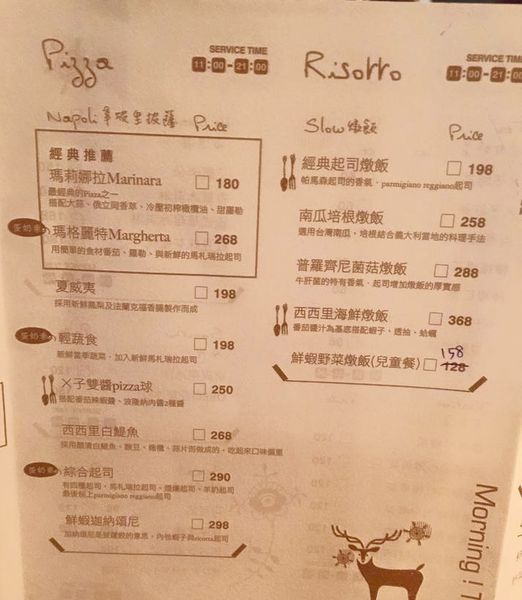 Pizza
SERVICE TIME
11:00-21:00
Napoli 拿坡里披薩 Price
經典推薦
瑪莉娜拉Marinara 180
最經典的Pizza之一
搭配大蒜、俄立岡香草、冷壓初榨橄欖油、甜羅勒
蛋奶素
瑪格麗特Margherta 268
用簡單的食材番茄、羅勒、與新鮮的馬札瑞拉起司
夏威夷 198
採用新鮮鳳梨及法蘭克福香腸製作而成
蛋奶素
輕蔬食 198
新鮮當季蔬菜，加入新鮮馬札瑞拉起司
X子雙醬pizza球 250
搭配番茄辣椒醬、波隆納肉醬2種醬
西西里白鯷魚 268
採用醋漬白鯷魚、酸豆、橄欖、蒜片而做成的，吃起來口味偏重
蛋奶素
綜合起司 290
有四種起司，馬札瑞拉起司、煙燻起司、羊奶起司
最後刨上parmigiano reggiano起司
鮮蝦迦納頌尼 298
加納頌尼是披薩餃的意思，內包蝦子與ricotta起司
Risotto
SERVICE TIME
11:00-21:00
Slow燉飯 Price
經典起司燉飯 198
帕馬森起司的香氣、parmigiano reggiano起司
南瓜培根燉飯 258
選用台灣南瓜，培根結合義大利當地的料理手法
普羅齊尼菌菇燉飯 288
牛肝菌的特有香氣、起司增加燉飯的厚實感
西西里海鮮燉飯 368
番茄醬汁為基底搭配蝦子、透抽、蛤蠣
158
鮮蝦野菜燉飯(兒童餐) 128
Morning ! T